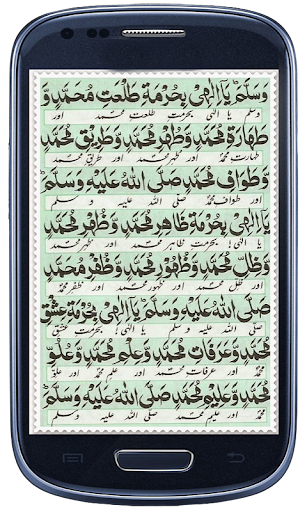 وَسَلَّمَ يَا اِلٰهِیْ بِحُرْمَةِ طَلْعَتِ مُحَمَّدٍ وَّ
وسلم یا الٰہی بحرمت طلعت محمد اور
طَهَارَةِ مُحَمَّدٍ وَّطُهْرِ مُحَمَّدٍ وَّطَرِيْقِ مُحَمَّدٍ
طہارت محمد اور طہر محمد اور طریق محمد
وَّطَوَافِ مُحَمَّدٍ صَلَّى اللهُ عَلَيْهِ وَسَلَّمَ
اور طواف محمد صلی اللہ علیہ و سلم
يَا اِلٰهِیْ بِحُرْمَةِ ظَاهِرِ مُحَمَّدٍ وَّظُهْرِ مُحَمَّدٍ
یا الٰہی بحرمت ظاہر محمد اور ظہر محمد
وَّظِلِّ مُحَمَّدٍ وَّظُهُوْرِ مُحَمَّدٍ وَّظَفَرِ مُحَمَّدٍ
اور ظل محمد اور ظہور محمد اور ظفر محمد
صَلَّى اللهُ عَلَيْهِ وَسَلَّمَ يَا اِلٰهِیْ بِحُرْمَةِ عِشْقِ
صلی اللہ علیہ و سلم یا الٰہی بحرمت عشق
مُحَمَّدٍ وَّعَرَفَاتِ مُحَمَّدٍ وَّعِلْمِ مُحَمَّدٍ وَّعُلُوِّ
محمد اور عرفات محمد اور علم محمد اور علو
مُحَمَّدٍ وَّعَلِيْمِ مُحَمَّدٍ صَلَّى اللهُ عَلَيْهِ وَسَلَّمَ
محمد اور علیم محمد صلی اللہ علیہ وسلم